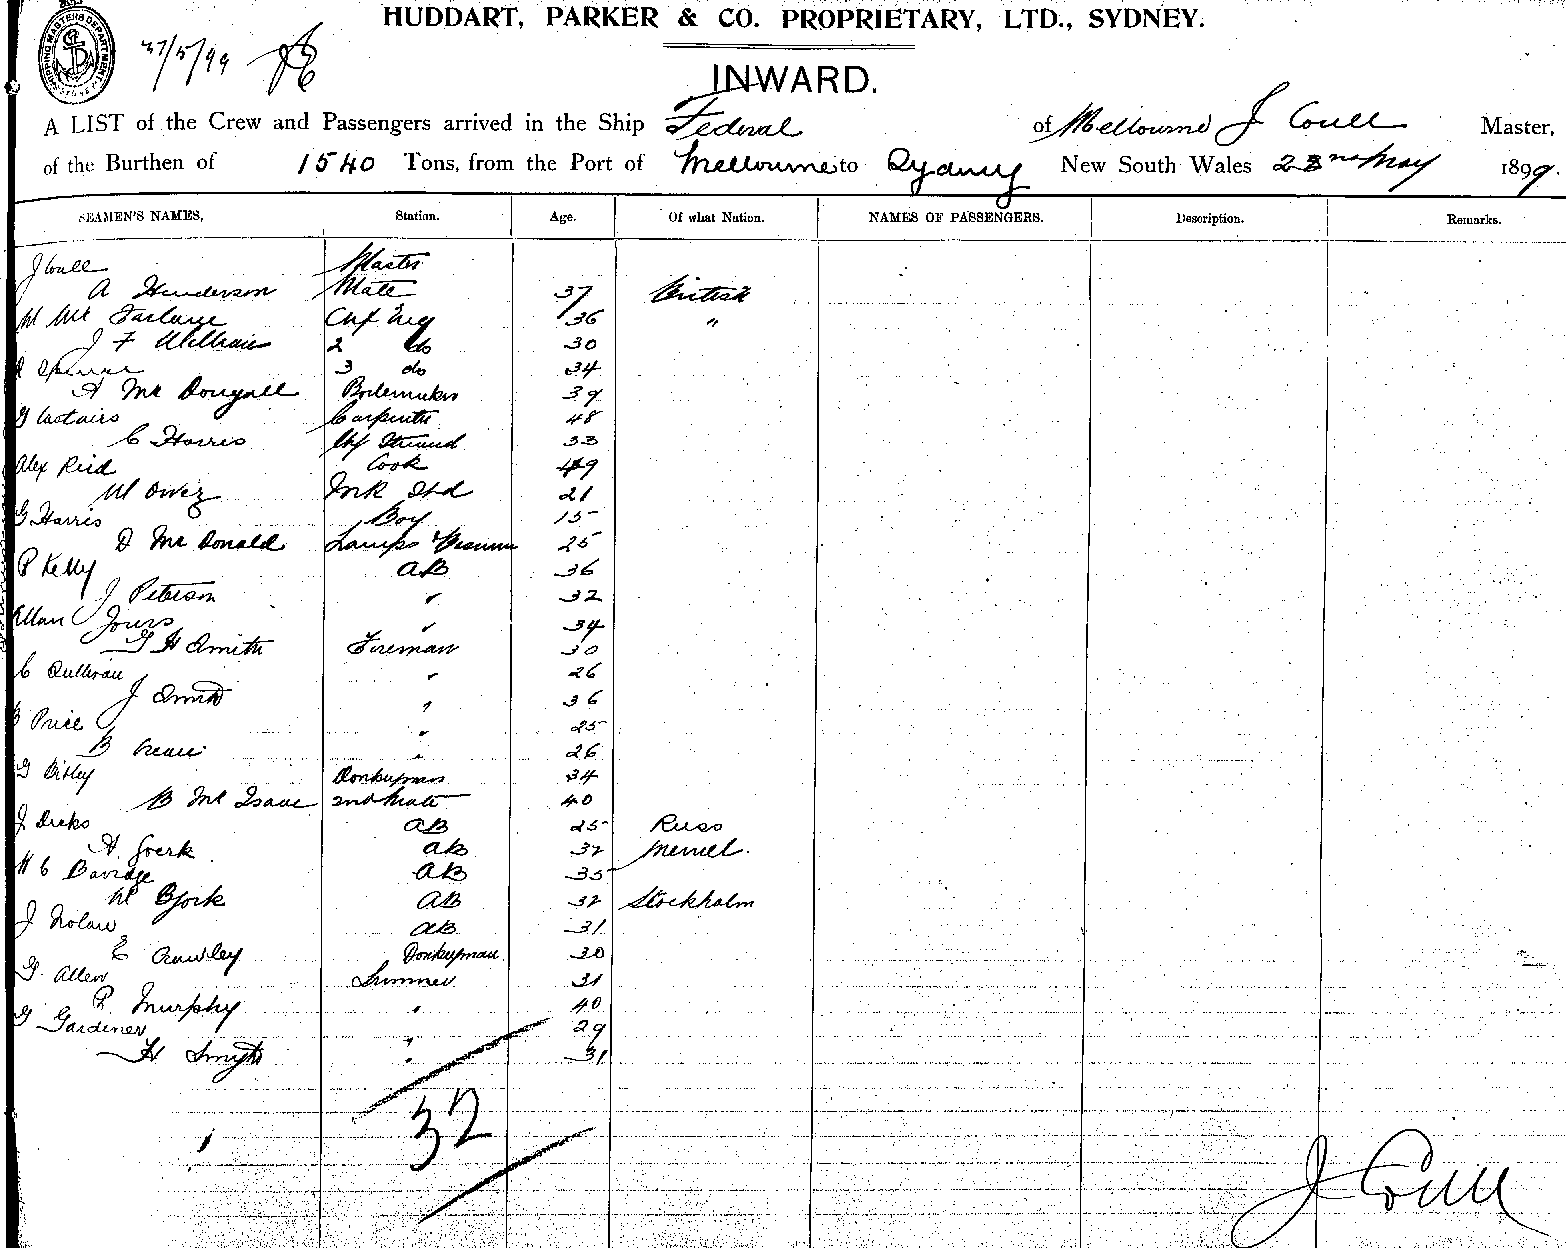 HUDDART, PARKER & CO. PROPRIETARY, LTD., SYDNEY.
INWARD.
A LIST of the Crew and Passengers arrived in the Ship Federal of Melbourne J Coull Master,
of the Burthen of 1540 Tons, from the Port of Melbourne to Sydney New South Wales 23rd May 1899.
SEAMEN'S NAMES, Station. Age. Of what Nation. NAMES OF PASSENGERS. Description. Remarks.
J Coull Master
A Henderson Mate 37 British
W Mc Farlane Chf Eng 36 "
J F 2 do 30
Spencer 3 do 34
A Mc Dougall Boilermaker 39
G Carstairs Carpenter 48
C Harris Chf Steward 33
Alex Reid Cook 49
W 21
G Harris Boy 15
D Mc Donald Lamps 25
P Kelly AB 36
J Peterson " 32
Allan " 34
G H Smith Fireman 30
C Sullivan " 26
J Smith " 36
Price " 25
B " 26
G Donkeyman 34
B Mc Isaac 2nd Mate 40
J Dicks AB 25 Russ
A. Goerk AB 32 Memel.
AB 35
W Bjork AB 32 Stockholm
J Nolan AB 31
E Crawley Donkeyman 30
G. Allen Trimmer 31
P Murphy " 40
G Gardiner " 29
H Smyth " 31
32
J Coull